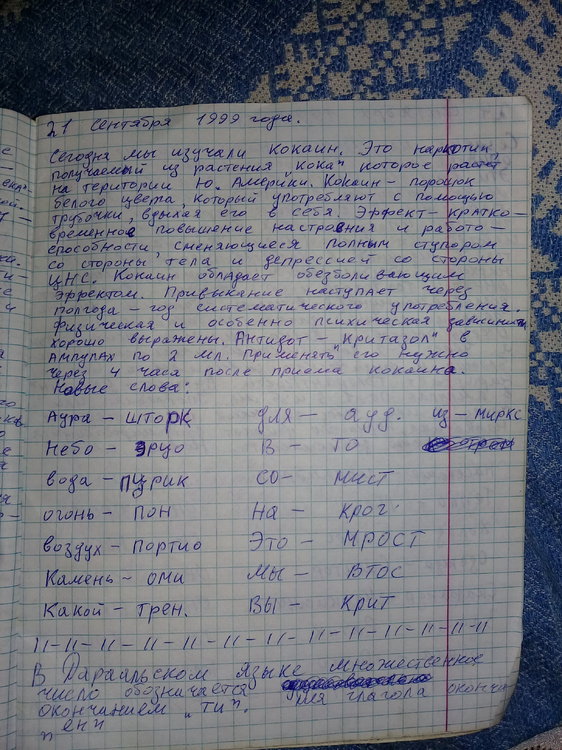 21 сентября 1999 года.
Сегодня мы изучали кокаин. Это наркотик,
получаемый из растения "кока" которое растет
на територии Ю. Америки. Кокаин - порошок
белого цвета, который употребляют с помощью
трубочки, вдыхая его в себя. Эффект - кратко-
временное повышение настроения и работо-
способности, сменяющиеся полным ступором
со стороны тела и депрессией со стороны
ЦНС. Кокаин обладает обезболивающим
эффектом. Привыкание наступает через
полгода - год систематического употребления.
Физическая и особенно психическая зависимость
хорошо выражены. Антидот - "Критазол" в
ампулах по 2 мл. Применять его нужно
через 4 часа после приема кокаина.
Новые слова:
Аура - шторк для - ауд. из - миркс
Небо - эрцо в - то
вода - пурик со - мист
огонь - пон на - крог
воздух - портио это - мрост
Камень - оми мы - втос
Какой - трен. вы - крит
11-11-11-11-11-11-11-11-11-11-11-11
В Дараальском языке множественное
число обозначается
окончанием "ти". Для глагола оконча
"ен"